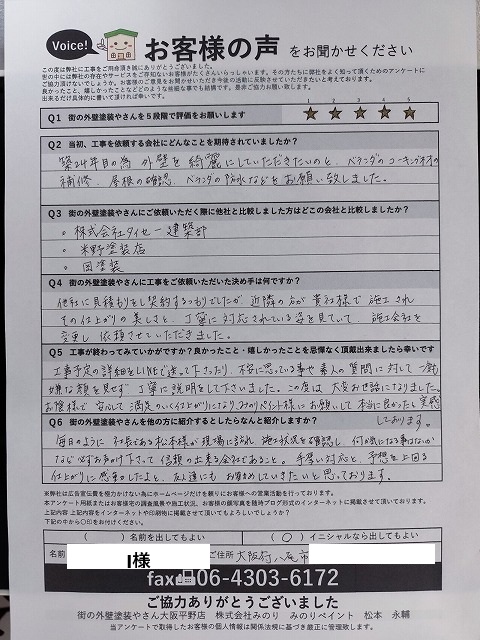 Voice! お客様の声 をお聞かせください
この度は弊社に工事をご用命頂き誠にありがとうございました。
世の中には弊社の存在やサービスをご存知ないお客様がたくさんいらっしゃいます。その方たちに弊社をよく知って頂くためのアンケートに
ご協力頂けないでしょうか。お客様のご意見をお聞かせいただき今後の活動に反映させていただきたいと考えております。
良かったこと、嬉しかったことなどどのような些細な事でも結構です。是非ご協力お願い致します。
出来るだけ具体的に書いて頂ければ幸いです。
1 2 3 4 5
Q1 街の外壁塗装やさんを5段階で評価をお願いします
Q2 当初、工事を依頼する会社にどんなことを期待されていましたか?
築24年目の為 外壁を綺麗にしていただきたいのと、ベランダのコーキングの
補修、屋根の確認、ベランダの防水などをお願い致しました。
Q3 街の外壁塗装やさんにご依頼いただく際に他社と比較しました方はどこの会社と比較しましたか?
。株式会社タイセー建築部
。米野塗装店
。図塗装
Q4 街の外壁塗装やさんに工事をご依頼いただいた決め手は何ですか?
他社に見積もりをし契約するつもりでしたが 近隣の方が貴社様で施工され
その仕上がりの美しさと、丁寧に対応されている姿を見ていて、施工会社を
変更し依頼させていただきました。
Q5 工事が終わってみていかがですか?良かったこと・嬉しかったことを忌憚なく頂戴出来ましたら幸いです
工事予定の詳細をLINEで送って下さったり、不安に思っている事や素人の質問に対して一つ
嫌な顔を見せず丁寧に説明をして下さいました。この度は大変お世話になりました。
お陰様で安心して満足のいく仕上がりになり、みのりペイント様にお願いして本当に良かったと実感
しております。
Q6 街の外壁塗装やさんを他の方に紹介するとしたらなんと紹介しますか?
毎日のように社長である松本様が現場に訪れ施工状況を確認し何か気になる事はないか
など必ずお声がけ下さって信頼の出来る会社であること。手厚い対応と、予想を上回る
仕上がりに感動したよと、友達にもお勧めしていきたいと思っております。
※弊社は広告宣伝費を極力かけない為にホームページだけを頼りにお客様への営業活動を行っております。
本アンケート用紙またはお客様宅の調査風景や施工状況、お客様の顔写真を随時ブログ形式のインターネットに掲載させて頂いております。
上記内容 上記内容をインターネットや印刷物に掲載させて頂いてもよろしいでしょうか?
下記の中から〇印をお付けください。
( )名前を出してもよい (〇)イニシャルなら出してもよい
名前 I様 ご住所 大阪府八尾市
fax 06-4303-6172
ご協力ありがとうございました
街の外壁塗装やさん大阪平野店 株式会社みのり みのりペイント 松本 永輔
当アンケートで取得したお客様の個人情報は関係法規に基ずき厳正に管理致します。